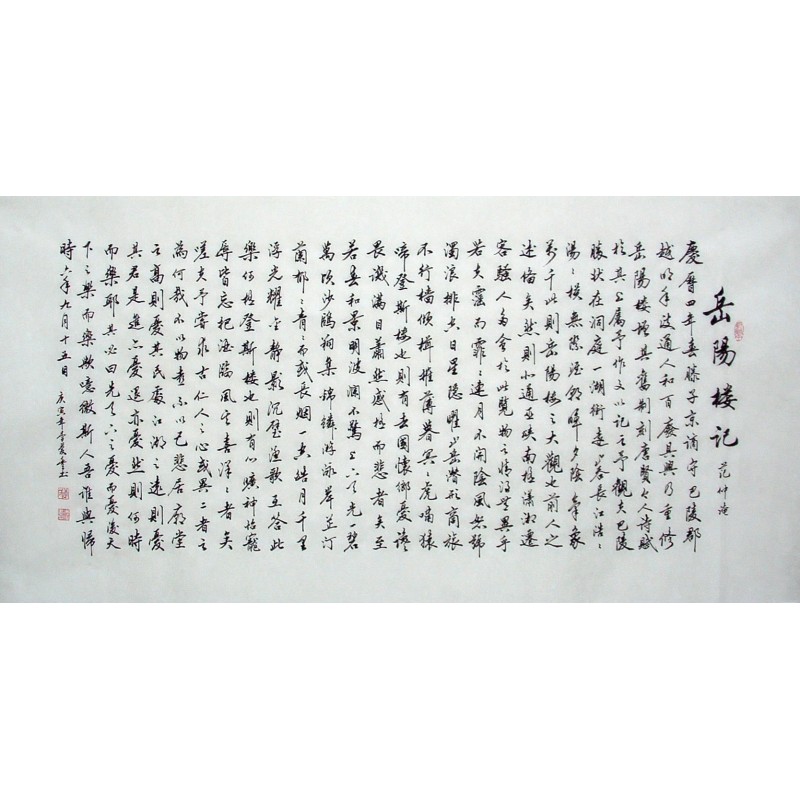 岳陽楼記
范仲淹
慶曆四年春滕子京謫守巴陵郡
越明年政通人和百廢具興乃重修
岳陽楼增其舊制刻唐賢今人詩賦
於其上属予作文以記之予觀夫巴陵
勝状在洞庭一湖銜遠山吞長江浩浩
湯湯横無際涯朝暉夕陰氣象
万千此則岳陽楼之大觀也前人之
述備矣然則北通巫峡南極瀟湘遷
客騷人多會於此覽物之情得無異乎
若夫霪雨霏霏連月不開陰風怒號
濁浪排空日星隐曜山岳潜形商旅
不行檣傾楫摧薄暮冥冥虎嘯猿
啼登斯楼也則有去國懷鄉憂讒
畏譏滿目蕭然感极而悲者矣至
若春和景明波瀾不驚上下天光一碧
萬頃沙鷗翔集錦鱗游泳岸芷汀
蘭郁郁青青而或長烟一空皓月千里
浮光耀金静影沉璧漁歌互答此
樂何极登斯楼也則有心曠神怡寵
辱皆忘把酒臨風其喜洋洋者矣
嗟夫予嘗求古仁人之心或異二者之
為何哉不以物喜不以己悲居廟堂
之高則憂其民處江湖之遠則憂
其君是進亦憂退亦憂然則何時
而樂耶其必曰先天下之憂而憂後天
下之樂而樂歟噫微斯人吾誰與歸
時六年九月十五日
庚寅年